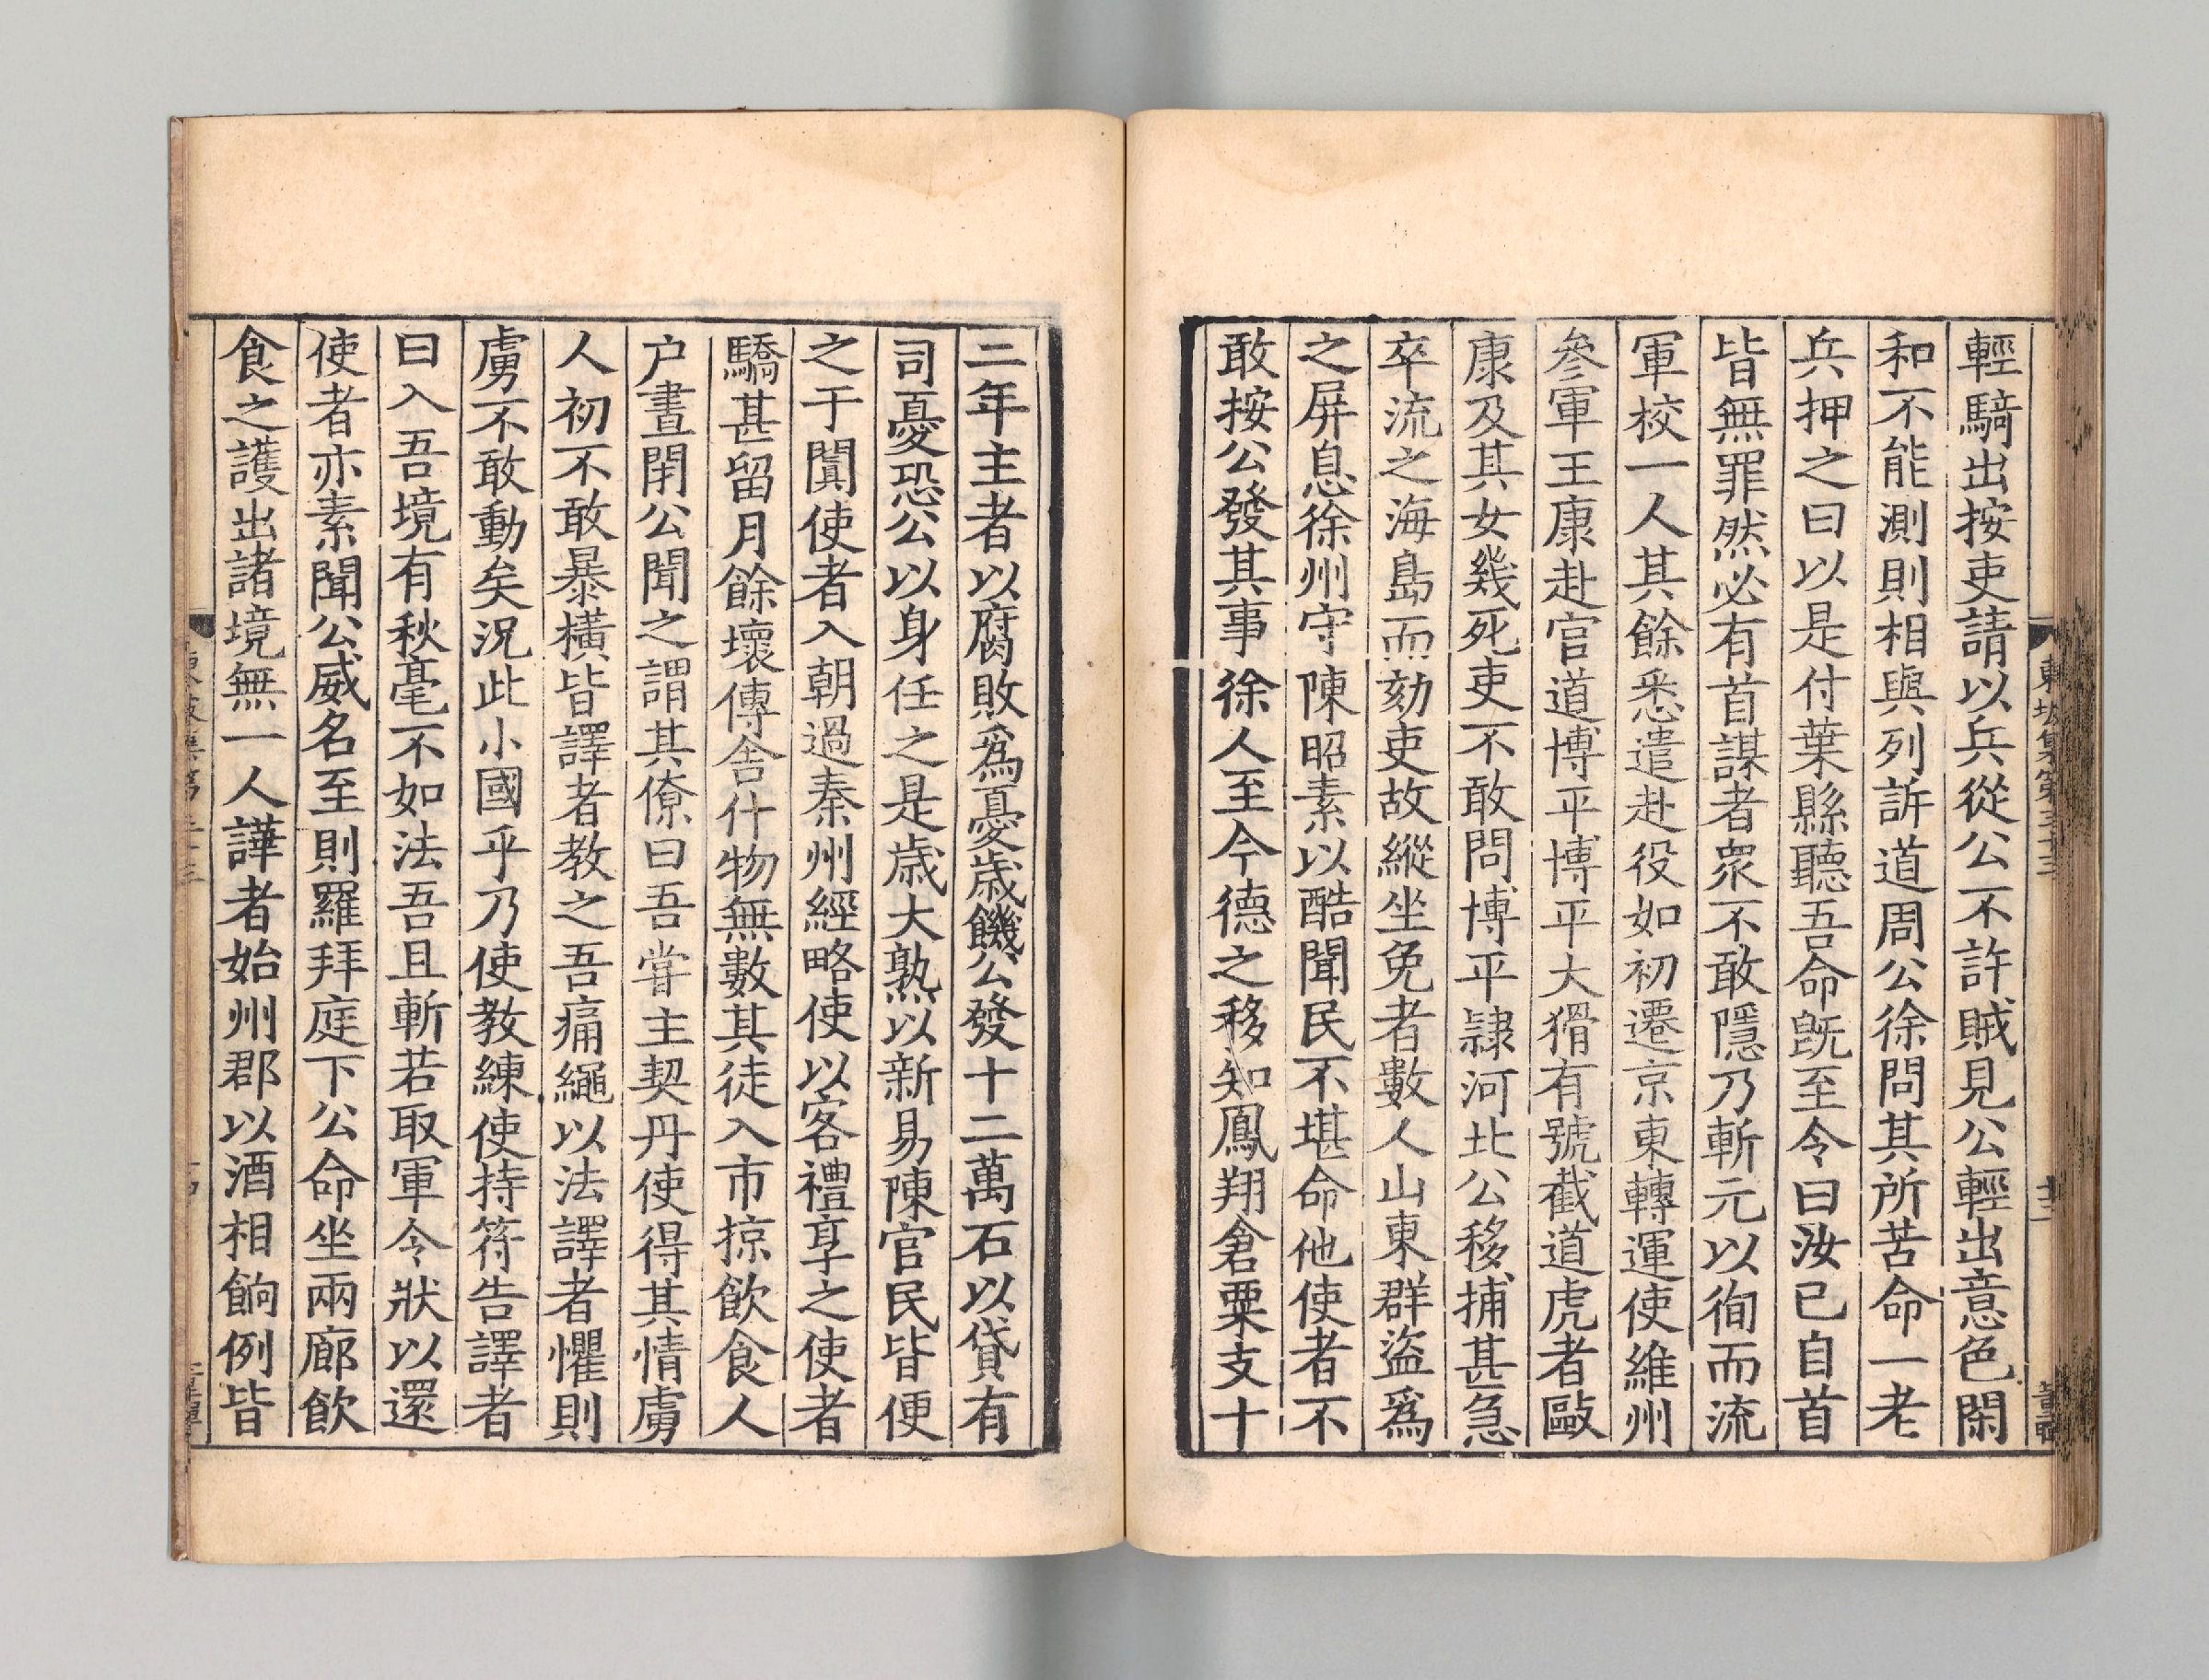 輕騎出按吏請以兵從公不許賊見公輕出意色閑
和不能測則相與列訴道周公徐問其所苦命一老
兵押之曰以是付葉縣聽吾命旣至令曰汝已自首
皆無罪然必有首謀者衆不敢隱乃斬元以徇而流
軍校一人其餘悉遣赴役如初遷京東轉運使維州
參軍王康赴官道博平博平大猾有號截道虎者毆
康及其女幾死吏不敢問博平隷河北公移捕甚急
卒流之海島而劾吏故縱坐免者數人山東群盜爲
之屏息徐州守陳昭素以酷聞民不堪命他使者不
敢按公發其事徐人至今德之移知鳳翔倉粟支十
二年主者以腐敗爲憂歲饑公發十二萬石以貸有
司憂恐公以身任之是歲大熟以新易陳官民皆便
之于闐使者入朝過秦州經略使以客禮享之使者
驕甚留月餘壞傳舍什物無數其徒入市掠飲食人
户晝閉公聞之謂其僚曰吾甞主契丹使得其情虜
人初不敢暴橫皆譯者教之吾痛繩以法譯者懼則
虜不敢動矣況此小國乎乃使教練使持符告譯者
曰入吾境有秋毫不如法吾且斬若取軍令狀以還
使者亦素聞公威名至則羅拜庭下公命坐兩廊飲
食之護出諸境無一人譁者始州郡以酒相餉例皆
東坡集第三十三